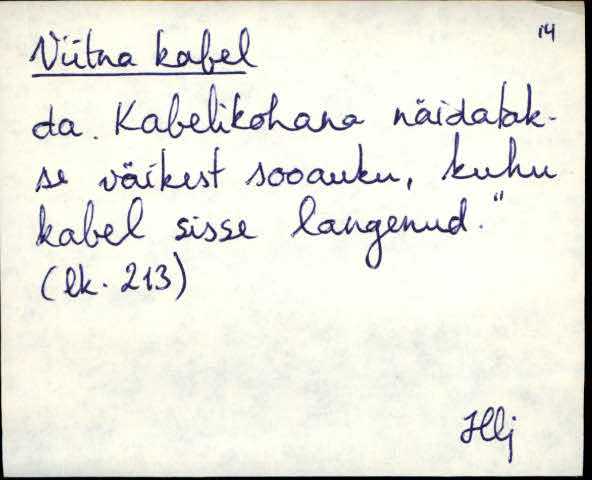 14
Viitna kabel
da. Kabelikohana näidatak-
se väikest sooauku, kuhu
kabel sisse langenud."
(lk. 213)
Hlj